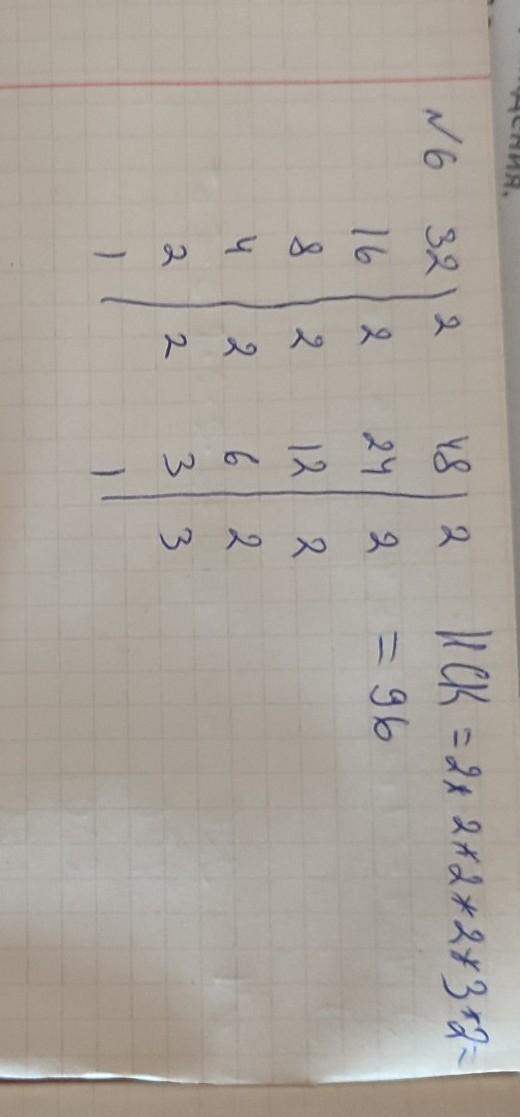 №6 32 | 2 48 | 2 НСК = 2*2*2*2*3*2=
16 | 2 24 | 2 = 96
8 | 2 12 | 2
4 | 2 6 | 2
2 | 2 3 | 3
1 1